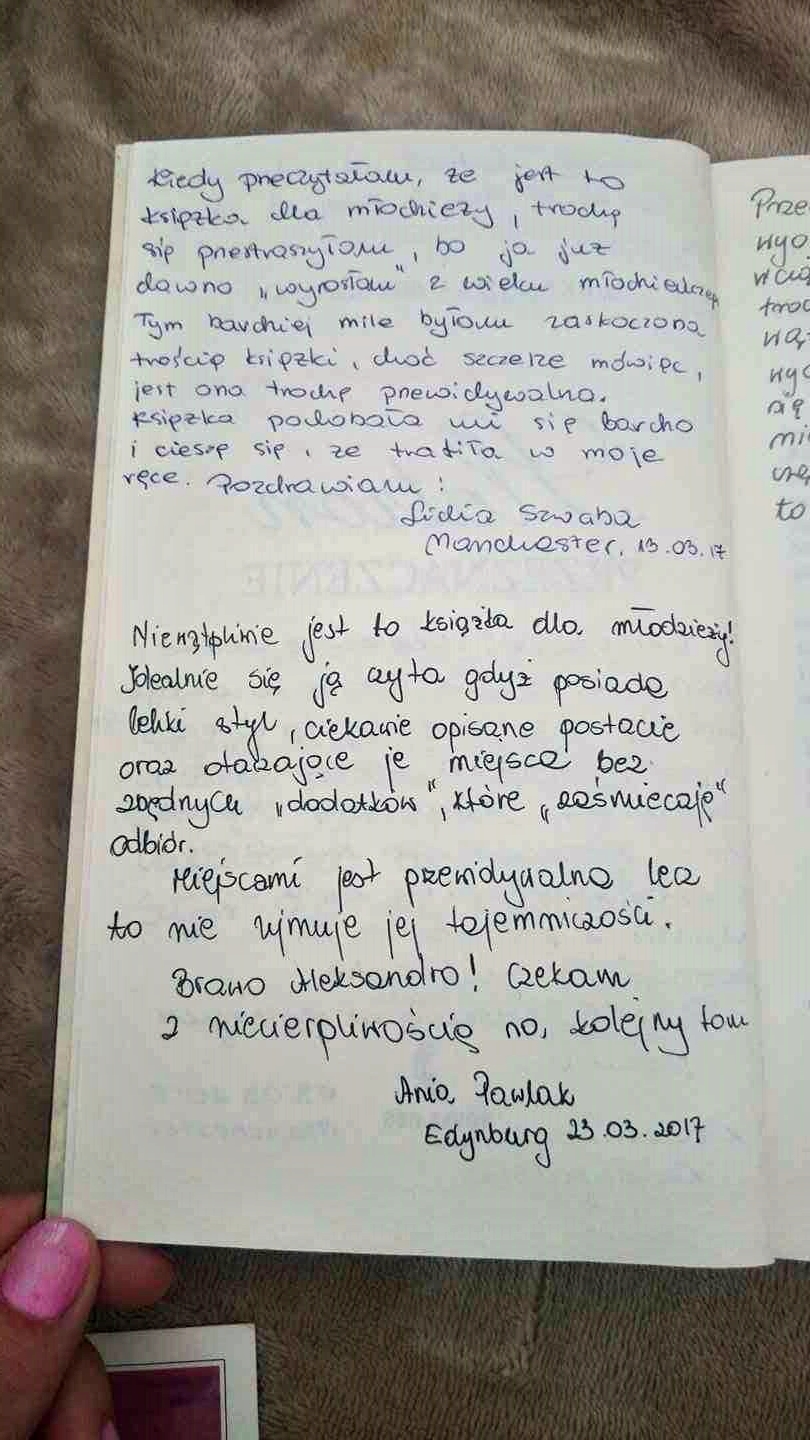 Kiedy przeczytałam, że jest to
książka dla młodzieży, trochę
się przestraszyłam, bo ja już
dawno „wyrosłam" z wieku młodzieńczego
Tym bardziej mile byłam zaskoczona
treścią książki, choć szczerze mówiąc,
jest ona trochę przewidywalna.
Książka podobała mi się bardzo
i cieszę się, że trafiła w moje
ręce. Pozdrawiam!
Lidia Szwaba
Manchester, 13.03.17
Niewątpliwie jest to książka dla młodzieży!
Idealnie się ją czyta gdyż posiada
lekki styl, ciekawie opisane postacie
oraz otaczające je miejsca bez
zbędnych „dodatków", które „zaśmiecają"
odbiór.
Miejscami jest przewidywalna lecz
to nie ujmuje jej tajemniczości.
Brawo Aleksandro! Czekam
z niecierpliwością na kolejny tom
Ania Pawlak
Edynburg 23.03.2017
Prze
wyo
troc
się
to